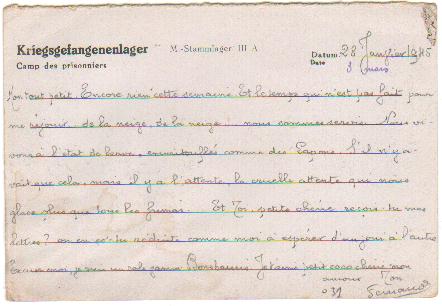 Kriegsgefangenenlager M.-Stammlager III A
Camp des prisonniers
Datum: 28 Janvier 1945
Date 3 mars
Mon tout petit. Encore rien cette semaine. Et le temps qui n'est pas fait pour
me réjouir. de la neige, de la neige nous sommes servis. Nous vi-
vons à l'état de larve, emmitouflés comme des Lapons. S'il n'y a-
vait que cela, mais il y a l'attente, la cruelle attente qui nous
glace plus que tous les Et Toi, petite chérie reçois-tu mes
lettres? ou en es-tu réduite comme moi à espérer d'un jour à l'autre
je suis un sale gamin Je t'aime petit coco chéri mon
amour Ton
Fernand